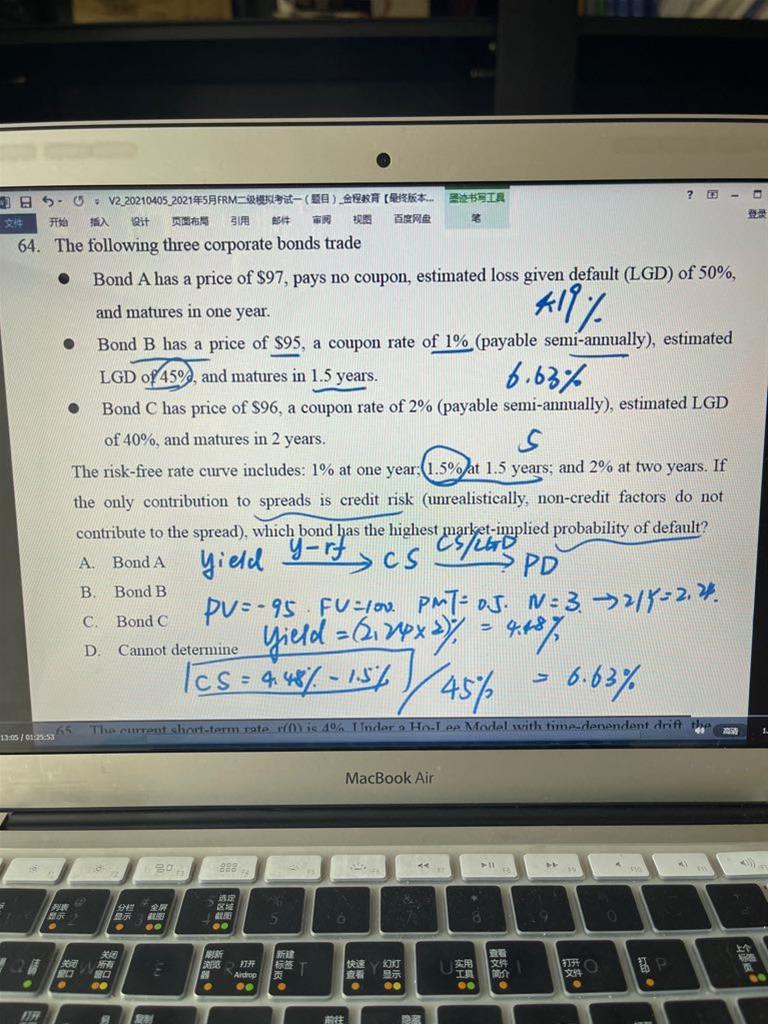 V2_20210405_2021年5月FRM二级模拟考试一（题目）_金程教育【最终版本... 墨迹书写工具
文件 开始 插入 设计 页面布局 引用 邮件 审阅 视图 百度网盘 笔 登录
64. The following three corporate bonds trade
● Bond A has a price of $97, pays no coupon, estimated loss given default (LGD) of 50%,
and matures in one year.
4.19%
● Bond B has a price of $95, a coupon rate of 1% (payable semi-annually), estimated
LGD of 45%, and matures in 1.5 years.
6.63%
● Bond C has price of $96, a coupon rate of 2% (payable semi-annually), estimated LGD
of 40%, and matures in 2 years.
5
The risk-free rate curve includes: 1% at one year; 1.5% at 1.5 years; and 2% at two years. If
the only contribution to spreads is credit risk (unrealistically, non-credit factors do not
contribute to the spread), which bond has the highest market-implied probability of default?
A. Bond A
Yield y-rf CS CS/LGD PD
B. Bond B
PV=-95. FV=100. PMT=0.5. N=3. → 2.24.
C. Bond C
Yield = (2.24×2)% = 4.48%
D. Cannot determine
CS = 4.48% - 1.5% / 45% = 6.63%
65 The current short-term rate, r(0) is 4%. Under a Ho-Lee Model with time-dependent drift, the
13:05 / 01:25:53 高清
MacBook Air
列表显示 分栏显示 全屏截图 选定区域截图
关闭窗口 关闭所有窗口 E 刷新浏览器 打开Airdrop 新建标签页 T 快速查看 Y 幻灯显示 U 实用工具 查看文件简介 打开文件 O 打印 P 上个标签页
打开 复制 前往 隐藏